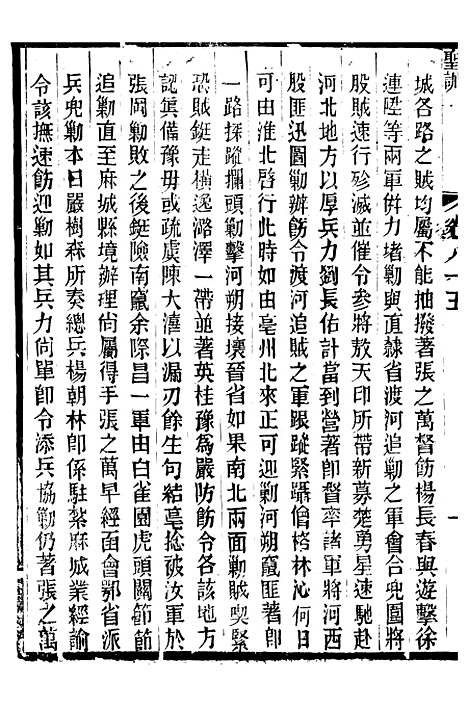 聖訓
卷八十五
城各路之賊均屬不能抽撥著張之萬督飭楊長春與遊擊徐
連陞等兩軍併力堵勦與直隸省渡河追勦之軍會合兜圍將
股賊速行殄滅並催令參將敖天印所帶新募楚勇星速馳赴
河北地方以厚兵力劉長佑計當到營著即督率諸軍將河西
股匪迅圖勦辦飭令渡河追賊之軍跟蹤緊躡僧格林沁何日
可由淮北啓行此時如由亳州北來正可迎勦河朔竄匪著即
一路探蹤攔頭勦擊河朔接壤晉省如果南北兩面勦賊喫緊
恐賊鋌走橫逸潞澤一帶並著英桂豫為嚴防飭令各該地方
認眞備豫毋或疏虞陳大濇以漏刃餘生句結亳捻被汝軍於
張岡勦敗之後鋌險南竄余際昌一軍由白雀園虎頭關節節
追勦直至麻城縣境辦理尙屬得手張之萬早經函會鄂省派
兵兜勦本日嚴樹森所奏總兵楊朝林即係駐紮麻城業經諭
令該撫速飭迎勦如其兵力尙單即令添兵協勦仍著張之萬